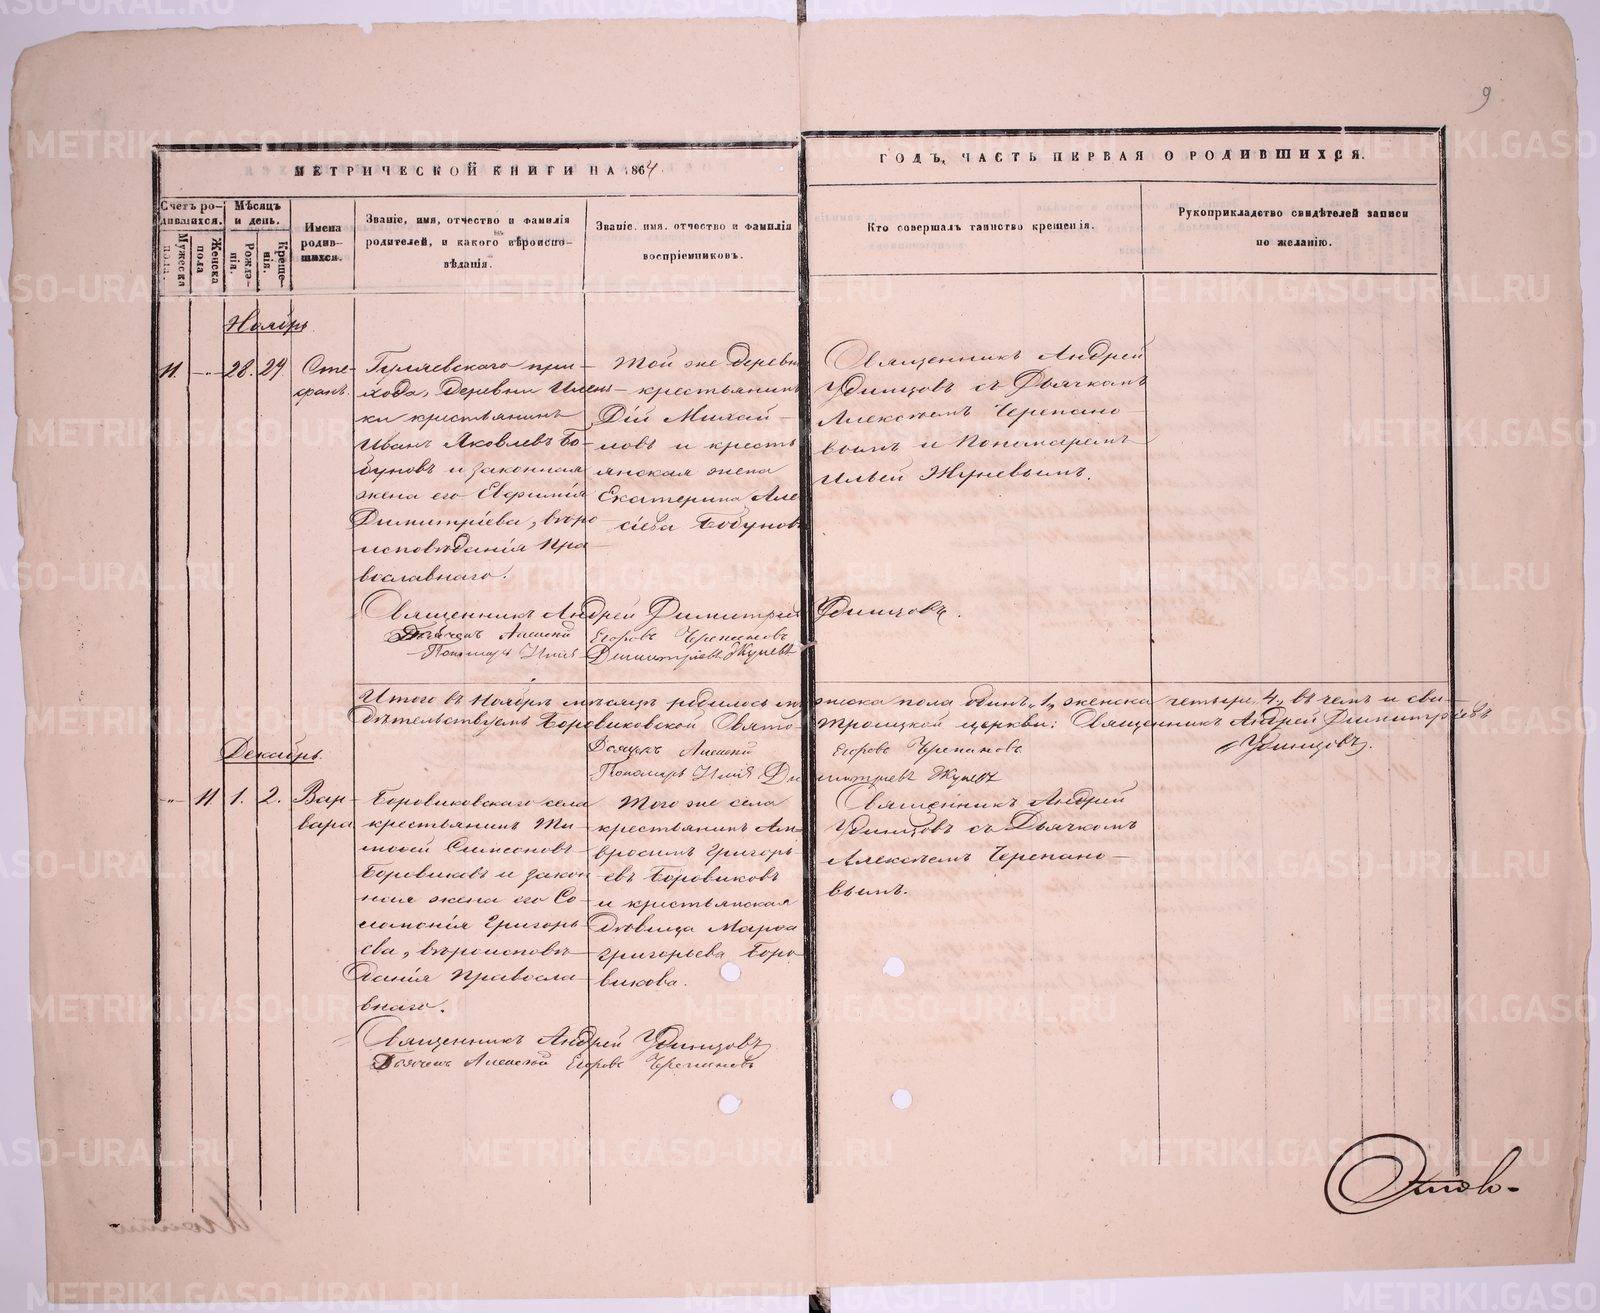 9
МЕТРИЧЕСКОЙ КНИГИ НА 1864
ГОДЪ, ЧАСТЬ ПЕРВАЯ О РОДИВШИХСЯ.
Счетъ ро-
дившихся.
Мужеска
пола.
Женска
пола
Мѣсяцъ
и день.
Рожде-
нія.
Креще-
нія.
Имена
родив-
шихся.
Званіе, имя, отчество и фамилія
родителей, и какого вѣроиспо-
вѣданія.
Званіе, имя, отчество и фамилія
воспріемниковъ.
Кто совершалъ таинство крещенія.
Рукоприкладство свидѣтелей записи
по желанію.
Ноябрь.
11. - 28. 29
Сте-
фанъ.
прихода, деревни
ки крестьянинъ
Иванъ Яковлевъ Бо-
буновъ и законная
жена его Евфимія
Димитріева, вѣро-
исповѣданія Пра-
вославнаго.
Той же деревни
крестьянинъ
Дій Михай-
ловъ и кресть
янская жена
Екатерина Але
сіева Бобунов
Священникъ Андрей
Удинцовъ съ Дьячкомъ
Алексѣемъ Черепано
вымъ и Пономаремъ
Ильей Жуневымъ.
Священникъ Андрей Димитріев Удинцовъ.
Дьячекъ Алексей Егоровъ Черепановъ
Пономарь Илія Димитріевъ
Итого въ Ноябрѣ мѣсяцѣ родилось мужеска пола одинъ „1„ женска четыре „4„ въ чемъ и сви-
дѣтельствуемъ Боровиковской Свято-Троицкой церкви: Священникъ Андрей Димитріевъ
Удинцовъ.
Дьячекъ Алексей Егоровъ Черепановъ
Пономарь Илія Димитріевъ
Декабрь.
- 11 1. 2.
Вар-
вара
Боровиковскаго села
крестьянинъ Ти-
мофей Симеоновъ
Боровиковъ и закон
ная жена его Со-
ломонія Григорь
ева, вѣроисповѣ-
данія Правосла-
внаго.
Того же села
крестьянинъ Ам-
вросимъ Григорь-
евъ Боровиковъ
и крестьянская
дѣвица Марѳа
Григорьева Боро
викова.
Священникъ Андрей
Удинцовъ съ Дьячкомъ
Алексѣемъ Черепано-
вымъ.
Священникъ Андрей Удинцовъ
Дьячекъ Алексей Егоровъ Черепановъ
METRIKI.GASO-URAL.RU